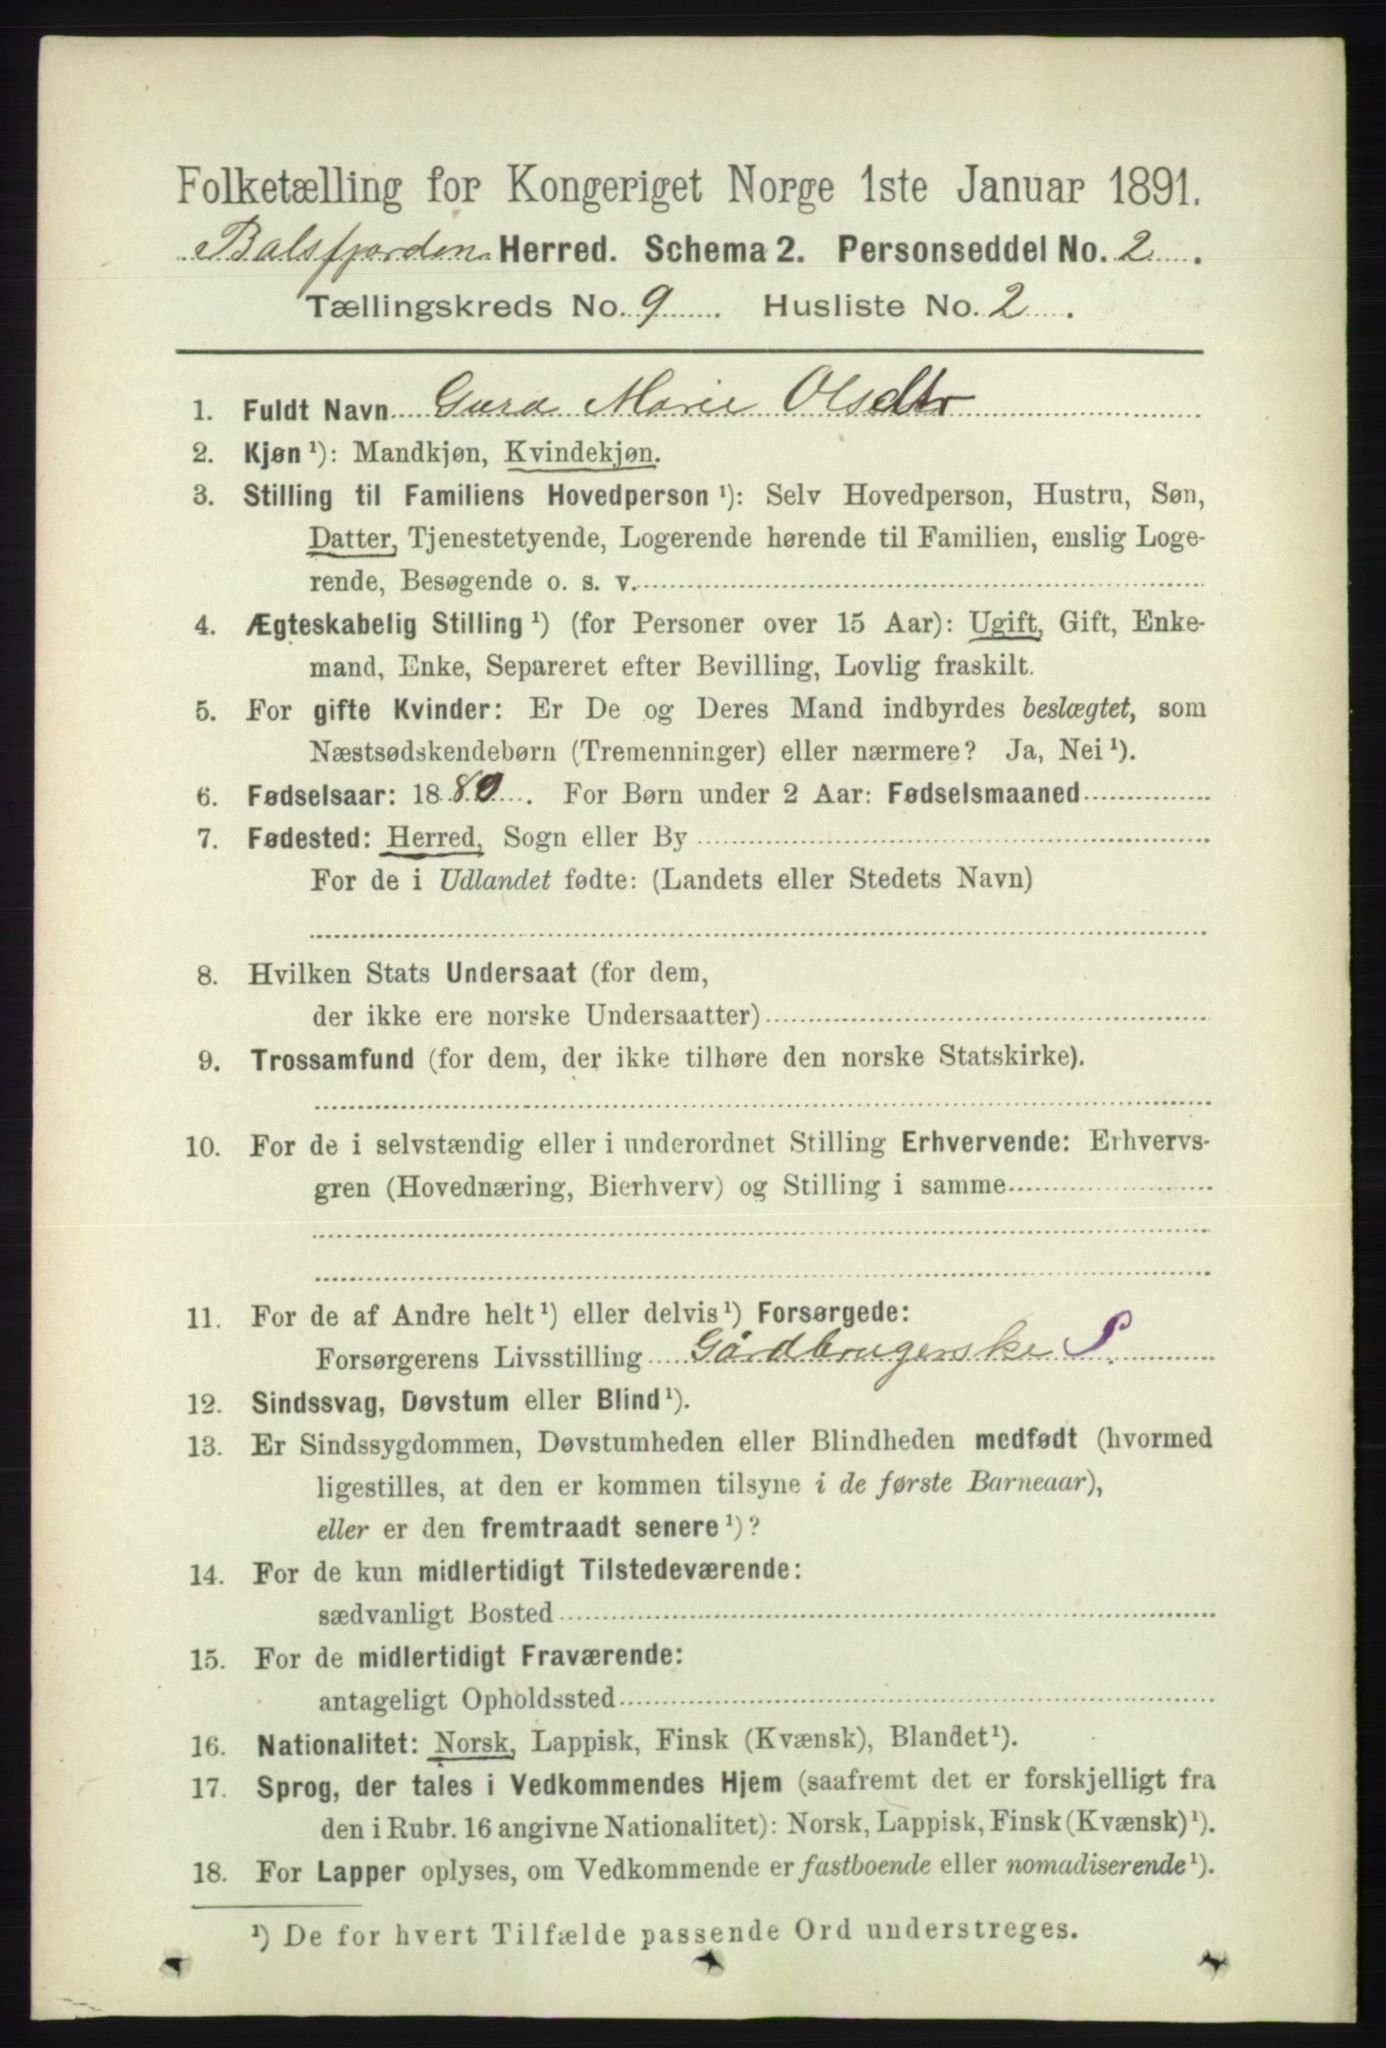 Folketælling for Kongeriget Norge 1ste Januar 1891.
Balsfjorden Herred. Schema 2. Personseddel No. 2.
Tællingskreds No. 9. Husliste No. 2.
1. Fuldt Navn Gura Marie Olsdtr
2. Kjøn ¹): Mandkjøn, Kvindekjøn.
3. Stilling til Familiens Hovedperson ¹): Selv Hovedperson, Hustru, Søn,
Datter, Tjenestetyende, Logerende hørende til Familien, enslig Loge-
rende, Besøgende o. s. v.
4. Ægteskabelig Stilling ¹) (for Personer over 15 Aar): Ugift, Gift, Enke-
mand, Enke, Separeret efter Bevilling, Lovlig fraskilt.
5. For gifte Kvinder: Er De og Deres Mand indbyrdes beslægtet, som
Næstsødskendebørn (Tremenninger) eller nærmere? Ja, Nei ¹).
6. Fødselsaar: 1880. For Børn under 2 Aar: Fødselsmaaned
7. Fødested: Herred, Sogn eller By
For de i Udlandet fødte: (Landets eller Stedets Navn)
8. Hvilken Stats Undersaat (for dem,
der ikke ere norske Undersaatter)
9. Trossamfund (for dem, der ikke tilhøre den norske Statskirke).
10. For de i selvstændig eller i underordnet Stilling Erhvervende: Erhvervs-
gren (Hovednæring, Bierhverv) og Stilling i samme
11. For de af Andre helt ¹) eller delvis ¹) Forsørgede:
Forsørgerens Livsstilling Gårdbrugerske S.
12. Sindssvag, Døvstum eller Blind ¹).
13. Er Sindssygdommen, Døvstumheden eller Blindheden medfødt (hvormed
ligestilles, at den er kommen tilsyne i de første Barneaar),
eller er den fremtraadt senere ¹)?
14. For de kun midlertidigt Tilstedeværende:
sædvanligt Bosted
15. For de midlertidigt Fraværende:
antageligt Opholdssted
16. Nationalitet: Norsk, Lappisk, Finsk (Kvænsk), Blandet ¹).
17. Sprog, der tales i Vedkommendes Hjem (saafremt det er forskjelligt fra
den i Rubr. 16 angivne Nationalitet): Norsk, Lappisk, Finsk (Kvænsk) ¹).
18. For Lapper oplyses, om Vedkommende er fastboende eller nomadiserende ¹).
¹) De for hvert Tilfælde passende Ord understreges.